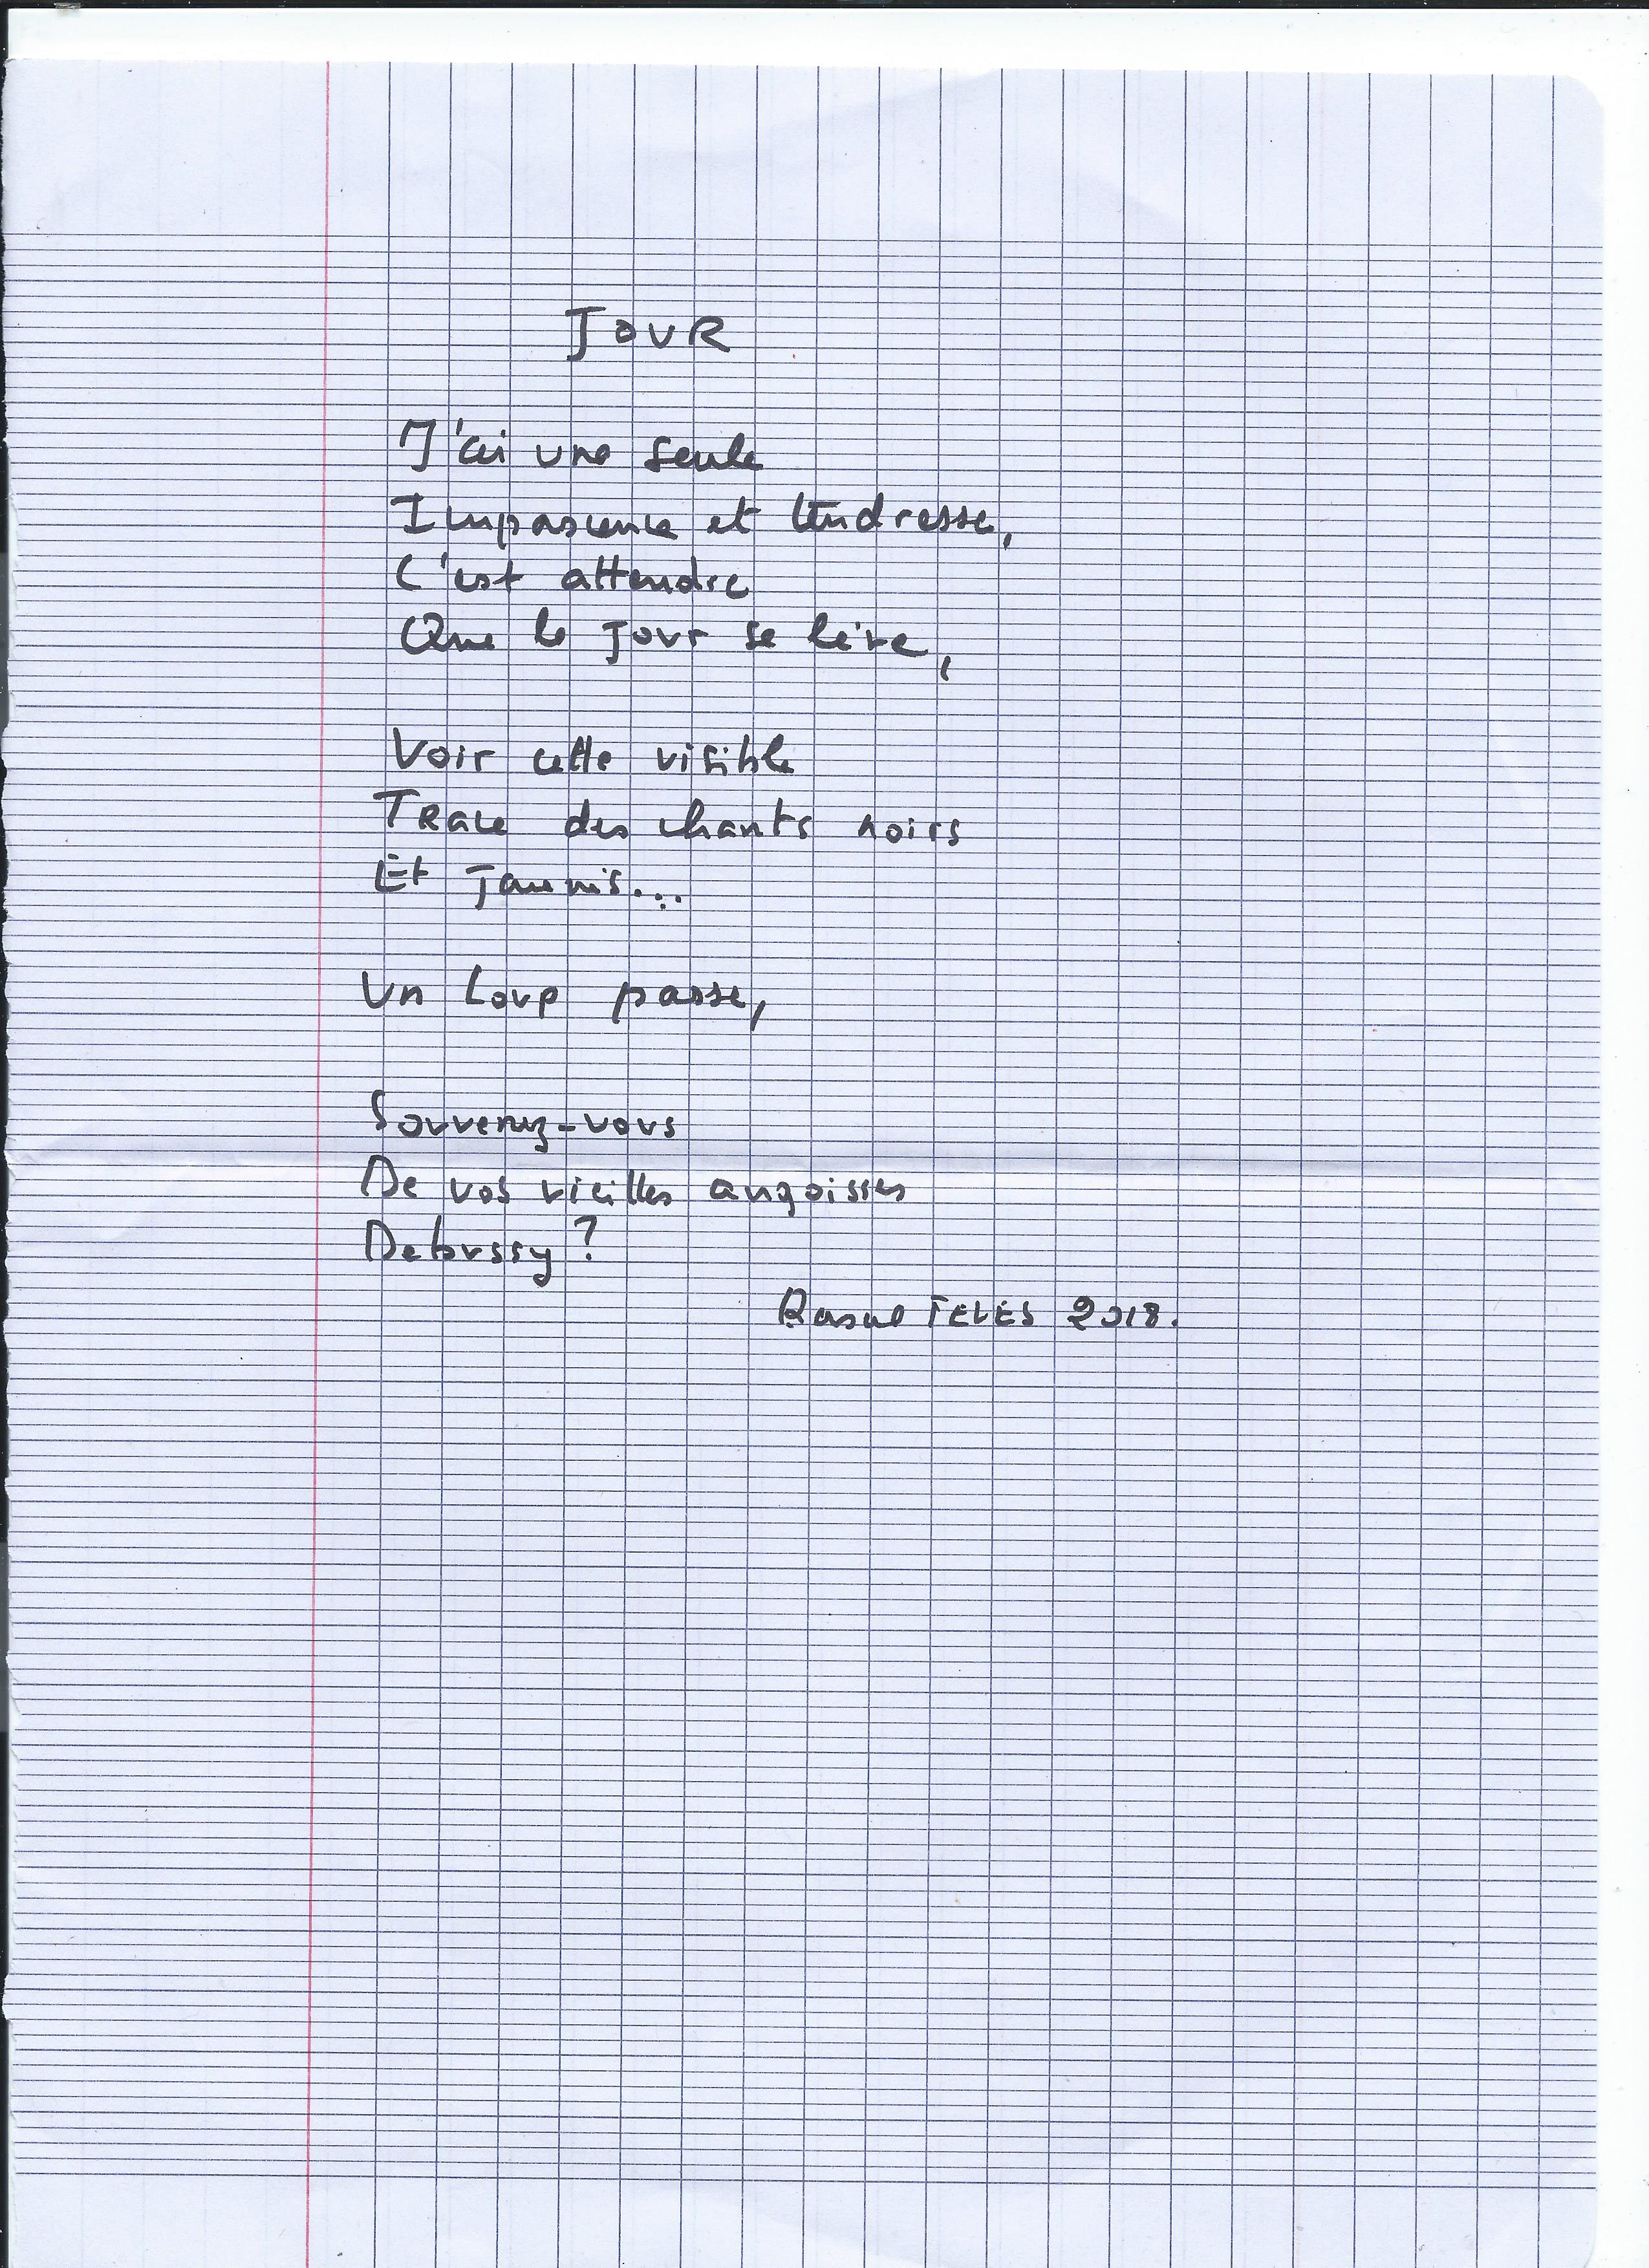 JOUR
J'ai une seule
Impascience et tendresse,
C'est attendre
Que le jour se lève,
Voir cette visible
Trace des chants noirs
Et jaunis...
Un Loup passe,
Souvenez-vous
De vos vieilles angoisses
Debussy ?
TELES 2018.